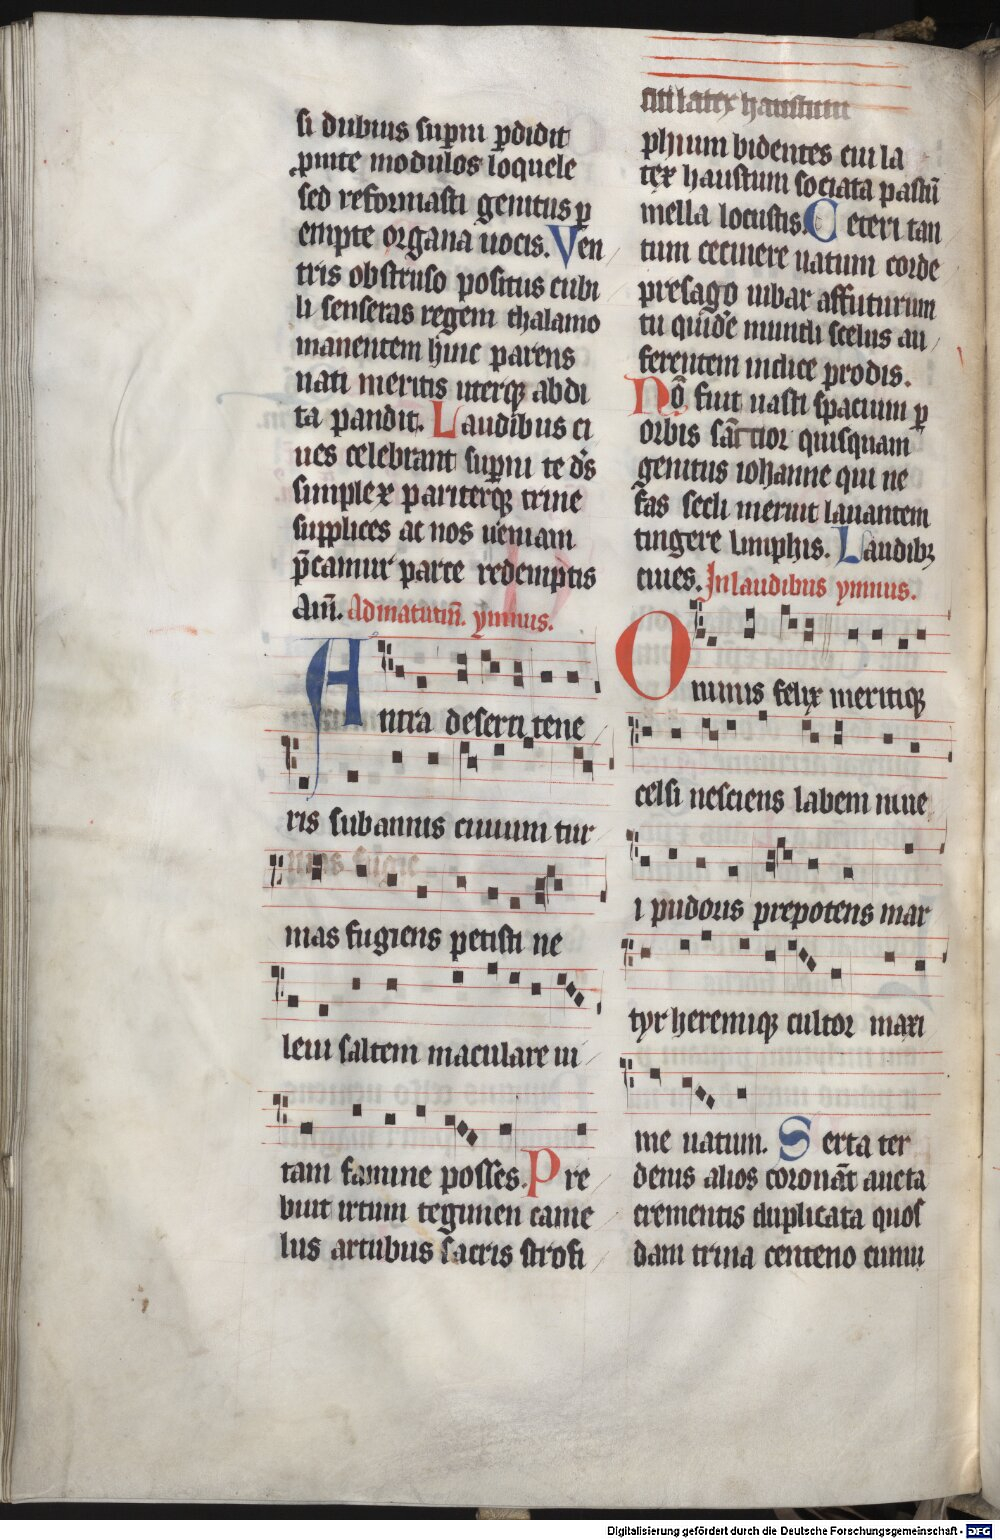 si dubius sup̄ni ꝑdidit
ꝓmte modulos loquele
sed reformasti genitus ꝑ
empte organa uocis. Ven
tris obstruso positus cubi
li senseras regem thalamo
manentem hinc parens
nati meritis uterqꝫ abdi
ta pandit. Laudibus ci
ues celebrant sup̄ni te ds̄
simplex pariterqꝫ trine
supplices ac nos ueniam
p̄camur parce redemptis
Am̄. Ad matutin̄. ymnus.
Antra deserti tene
ris sub annis ciuium tur
mas fugiens petisti ne
leui saltem maculare ui
tam famine posses. Pre
buit irtum tegimen came
lus artubus sacris strofi
siti latex haustum
phium bidentes cui la
tex haustum sociata pastū
mella locustis. Ceteri tan
tum cecinere uatum corde
presago iubar affuturum
tu quidē mundi scelus au
ferentem indice prodis.
Nō fuit uasti spacium ꝑ
orbis sāctior quisquam
genitus iohanne qui ne
fas secli meruit lauantem
tingere limphis. Laudibꝫ
ciues. In laudibus ymnus.
O nimis felix meritiqꝫ
celsi nesciens labem niue
i pudoris prepotens mar
tyr heremiqꝫ cultor maxi
me uatum. Serta ter
denis alios coronāt aucta
crementis duplicata quos
dam trina centeno cumu
Digitalisierung gefördert durch die Deutsche Forschungsgemeinschaft - DFG